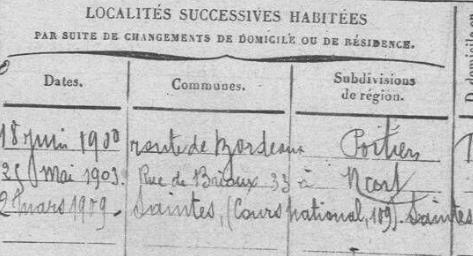 LOCALITÉS SUCCESSIVES HABITÉES
PAR SUITE DE CHANGEMENTS DE DOMICILE OU DE RÉSIDENCE.
Dates. Communes. Subdivisions
de région.
18 juin 1900 route de Bordeaux Poitiers
25 Mai 1903. Rue de 33 à Niort
2 mars 1909. Saintes, (Cours national, 109). Saintes